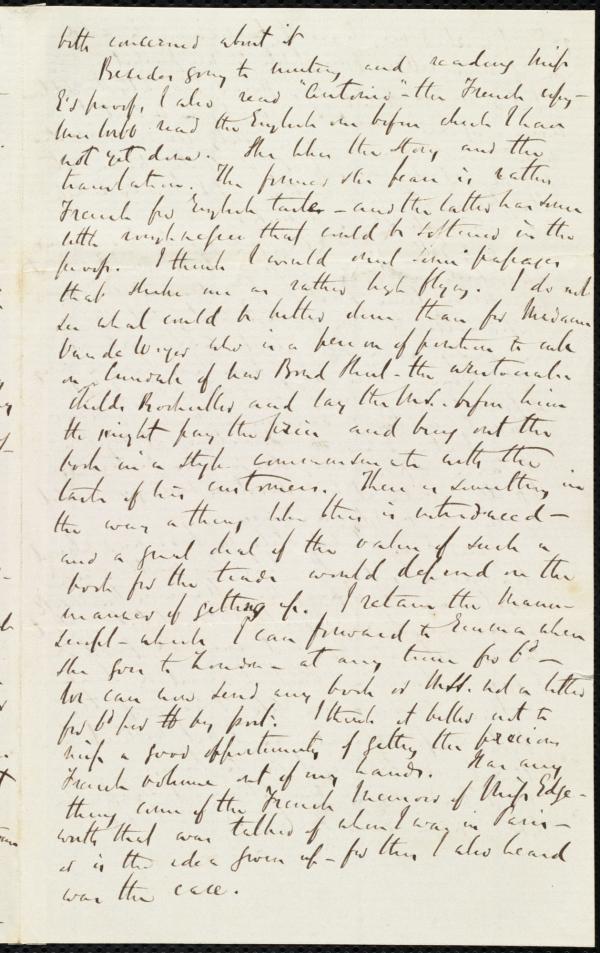 both concerned about it
Besides going to meeting and reading Miss
E's proofs, I also read "Antonio" - the French copy -
read the English one before which I have
not yet done. She likes the story and the
translation. The former she fears is rather
French for English taste - and the latter has some
little roughnesses that could be softened in the
proofs. I think I would omit some passages
that strike me as rather high flying. I do not
see what could be better done than for Madame
Van de Weyer who is a person of position to call
on of New Bond Street - the aristocratic
childs Bookseller and lay the M.S. before him
He might pay the price and bring out the
book in a style commensurate with the
taste of his customers. There is something in
the way a thing like this is introduced -
and a great deal of the value of such a
book for the trade would depend on the
manner of getting up. I retain the Manu-
script - which I can forward to Emma when
she goes to London - at any time for 6d -
We can now send any book or MSS. not a letter
for 6d per lb by post. I think it better not to
miss a good opportunity of getting the precious
French volume out of my hands. Has any
thing come of the French Memoir of Miss Edge-
worth that was talked of when I was in Paris -
or is the idea given up - for this I also heard
was the case.